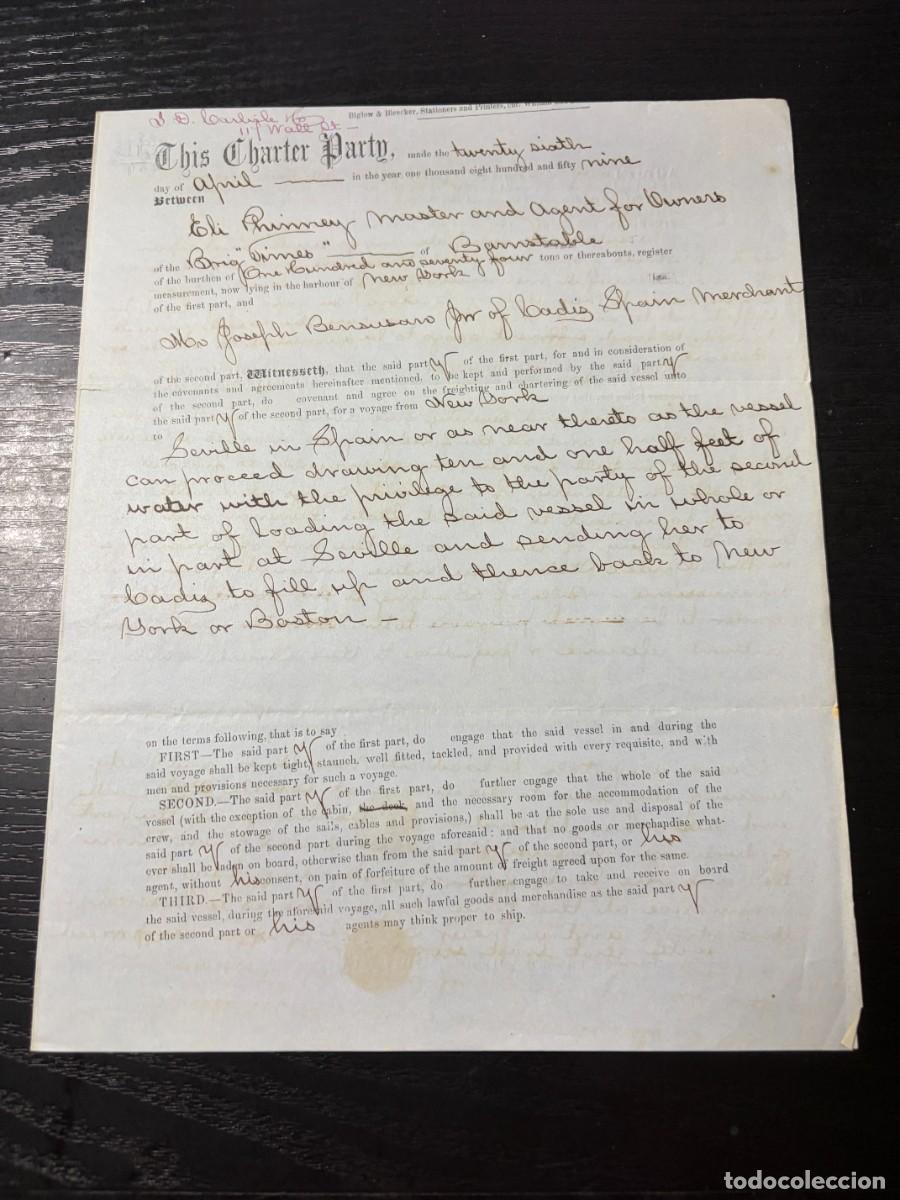 Biglow & Bleecker, Stationers and Printers, cor. William
117 Wall St —
This Charter Party, made the twenty sixth
day of April in the year one thousand eight hundred and fifty nine
Between
Eli Phinney Master and Agent for Owners
of the Brig "Times" of Barnstable
of the burthen of One Hundred and seventy four tons or thereabouts, register
measurement, now lying in the harbour of New York
of the first part, and
Mr Joseph Bensusan Jnr of Cadiz Spain Merchant
of the second part, Witnesseth, that the said party of the first part, for and in consideration of
the covenants and agreements hereinafter mentioned, to be kept and performed by the said party
of the second part, do covenant and agree on the freighting and chartering of the said vessel unto
the said party of the second part, for a voyage from New York
to
Seville in Spain or as near thereto as the vessel
can proceed drawing ten and one half feet of
water with the privilege to the party of the second
part of loading the said vessel in whole or
in part at Seville and sending her to
Cadiz to fill up and thence back to New
York or Boston —
on the terms following, that is to say
FIRST—The said party of the first part, do engage that the said vessel in and during the
said voyage shall be kept tight, staunch, well fitted, tackled, and provided with every requisite, and with
men and provisions necessary for such a voyage.
SECOND.—The said party of the first part, do further engage that the whole of the said
vessel (with the exception of the cabin, the deck, and the necessary room for the accommodation of the
crew, and the stowage of the sails, cables and provisions,) shall be at the sole use and disposal of the
said party of the second part during the voyage aforesaid: and that no goods or merchandise what-
ever shall be laden on board, otherwise than from the said party of the second part, or his
agent, without his consent, on pain of forfeiture of the amount of freight agreed upon for the same.
THIRD.—The said party of the first part, do further engage to take and receive on board
the said vessel, during the aforesaid voyage, all such lawful goods and merchandise as the said party
of the second part or his agents may think proper to ship.
todocoleccion